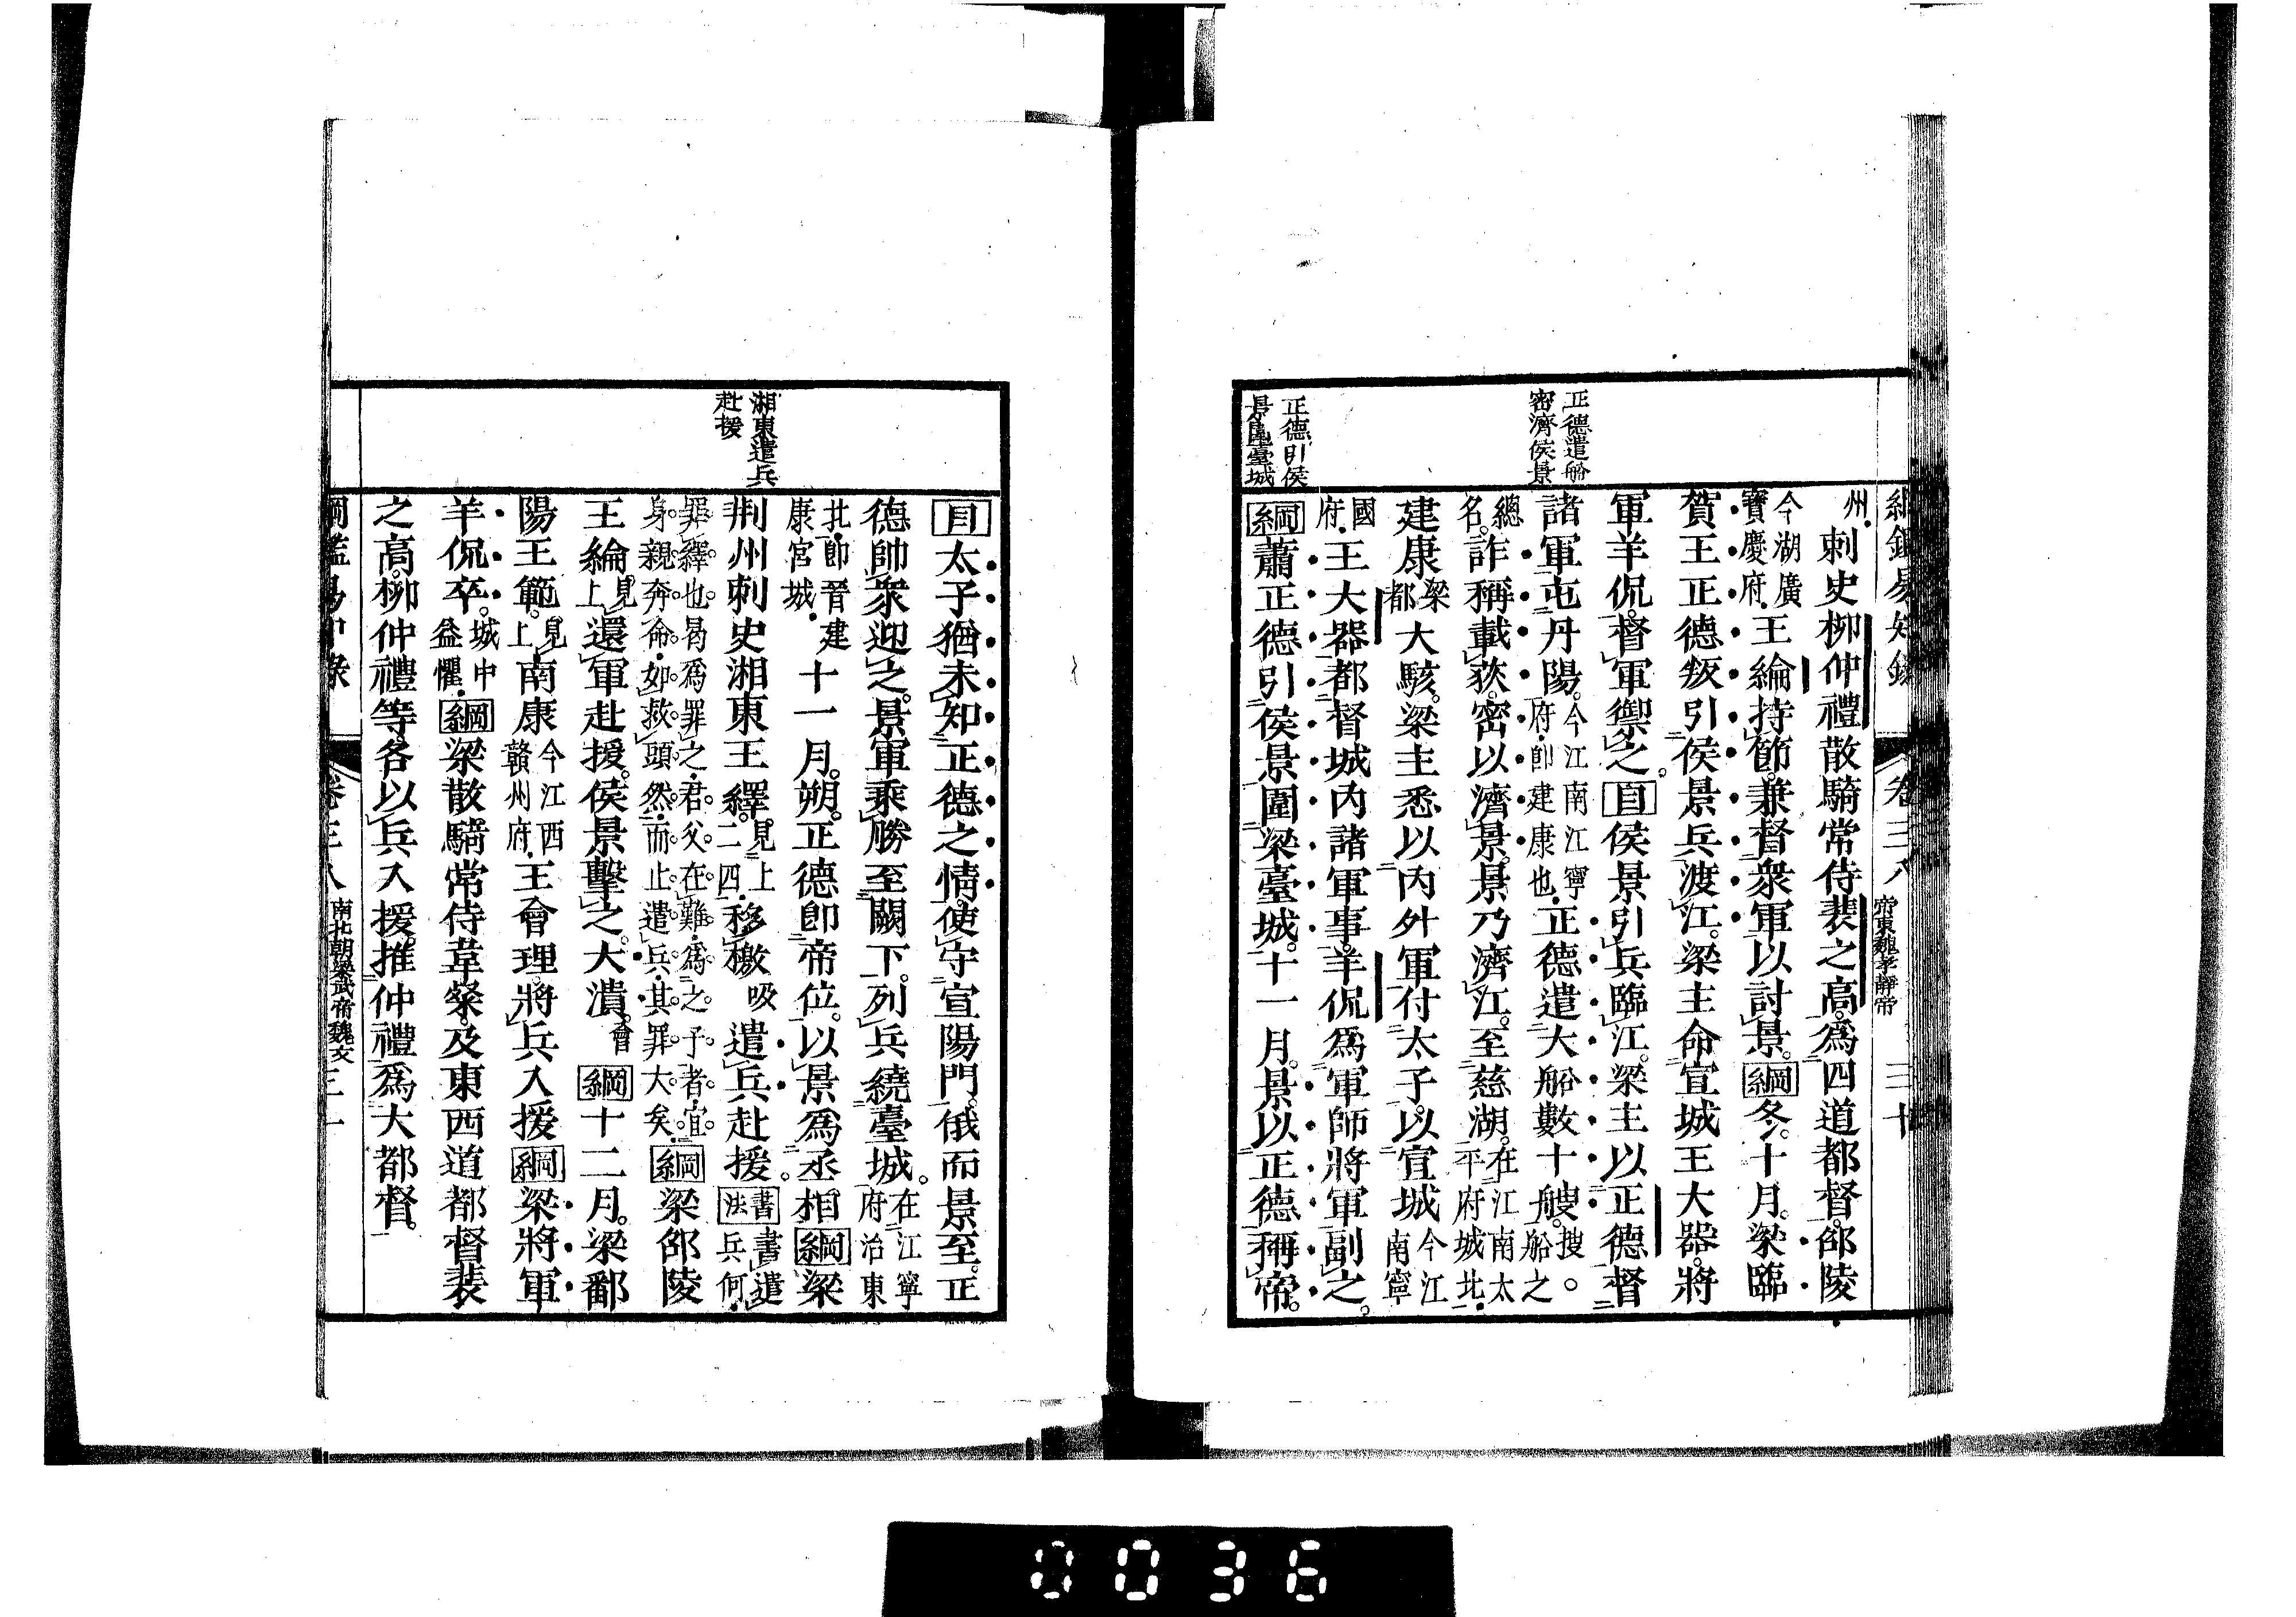 綱鑑易知錄 卷三八 帝東魏孝靜帝 三十
正德遣船
密濟侯景
正德引侯
景圍臺城
州。刺史柳仲禮散騎常侍裴之高。爲四道都督。邵陵
今湖廣寶慶府。王綸持節。兼督衆軍以討景。綱冬。十月。梁臨
賀王正德叛引侯景兵渡江。梁主命宣城王大器。將
軍羊侃。督軍禦之。目侯景引兵臨江。梁主以正德督
諸軍屯丹陽。今江南江寧府。卽建康也。正德遣大船數十艘。搜。船之
總名。詐稱載荻。密以濟景。景乃濟江。至慈湖。在江南太平府城北。
建康梁都大駭。梁主悉以內外軍付太子。以宣城今江南寧
國府。王大器都督城內諸軍事。羊侃爲軍師將軍副之。
綱蕭正德引侯景圍梁臺城。十一月。景以正德稱帝。
湘東遣兵
赴援
目太子猶未知正德之情。使守宣陽門。俄而景至。正
德帥衆迎之。景軍乘勝至闕下。列兵繞臺城。在江寧府治東
北。卽晉建康宮城。十一月。朔。正德卽帝位。以景爲丞相。綱梁
荆州刺史湘東王繹。見上二四。移檄吸遣兵赴援。書法書遣兵何。
罪繹也。曷爲罪之。君父在難。爲之子者。宜身親奔命。如救頭然。而止遣兵。其罪大矣。綱梁邵陵
王綸見上還軍赴援。侯景擊之。大潰。會綱十二月。梁鄱
陽王範。見上南康今江西贛州府。王會理。將兵入援。綱梁將軍
羊侃卒。城中益懼。綱梁散騎常侍韋粲。及東西道都督裴
之高。柳仲禮等。各以兵入援。推仲禮爲大都督。
綱鑑易知錄 卷三八 南北朝梁武帝魏文 三一
0036